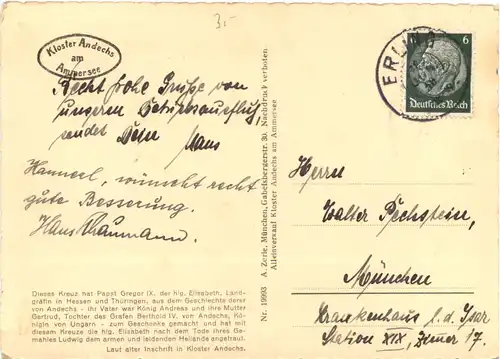 3.-
Kloster Andechs
am
Ammersee
Recht frohe Grüße von
unserem Betriebsausflug
sendet Dein Hans
wünscht recht
gute Besserung.
Hans Thaumann.
Dieses Kreuz hat Papst Gregor IX. der hlg. Elisabeth, Land-
gräfin in Hessen und Thüringen, aus dem Geschlechte derer
von Andechs - ihr Vater war König Andreas und ihre Mutter
Gertrud, Tochter des Grafen Berthold IV. von Andechs, Kö-
nigin von Ungarn - zum Geschenke gemacht und hat mit
diesem Kreuze die hlg. Elisabeth nach dem Tode ihres Ge-
mahles Ludwig dem armen und leidenden Heilande angetraut.
Laut alter Inschrift in Kloster Andechs.
Nr. 19993 A. Zerle, München, Gabelsbergerstr. 30. Nachdruck verboten.
Alleinverkauf Kloster Andechs am Ammersee
ERLING
6
Deutsches Reich
Herrn
Walter Pechstein,
München
Krankenhaus l. d. Isar
Station XIX, Zimmer 17.